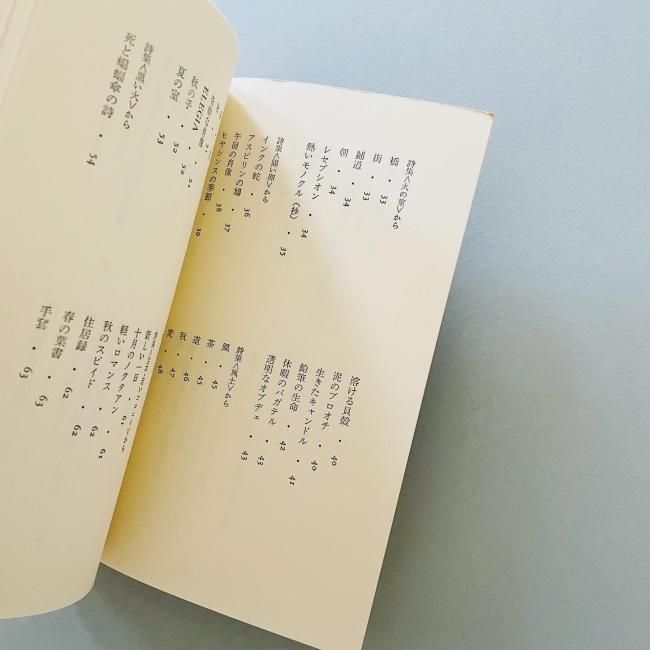 詩集〈火の菫〉から
橋・33
街・33
鋪道・34
朝・34
レセプシオン・34
熱いモノクル（抄）・35
詩集〈固い卵〉から
インクの蛇・36
アスピリンの・37
午前の肖像・38
ヒヤシンスの季節・39
溶ける貝殻・40
泥のブロオチ・40
生きたキャンドル・41
鉛筆の生命・42
休暇のバガテル・43
透明なオブヂェ・43
詩集〈風土〉から
風・45
茶・45
道・46
秋・47
麦・48
ELEGIA
秋の手・
夏の室・33
詩集〈黒い火〉から
死と蝙蝠傘の詩・54
新しい一日・
十月のノクタアン・61
軽いロマンス・61
秋のスピイド・62
住居録・62
春の葉書・63
手套・63